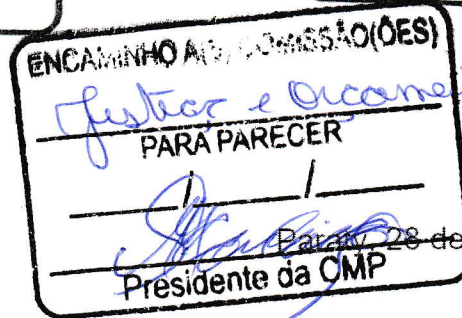 ENCAMINHO A(S) COMISSÃO(ÕES)
Justiça e Orçame
PARA PARECER
/ /
Paraty, 28 de
Presidente da CMP